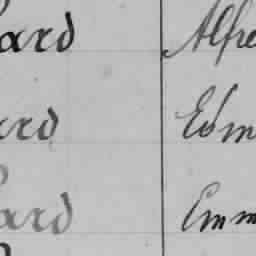 ard Alfre
ard Edm
ard Emm